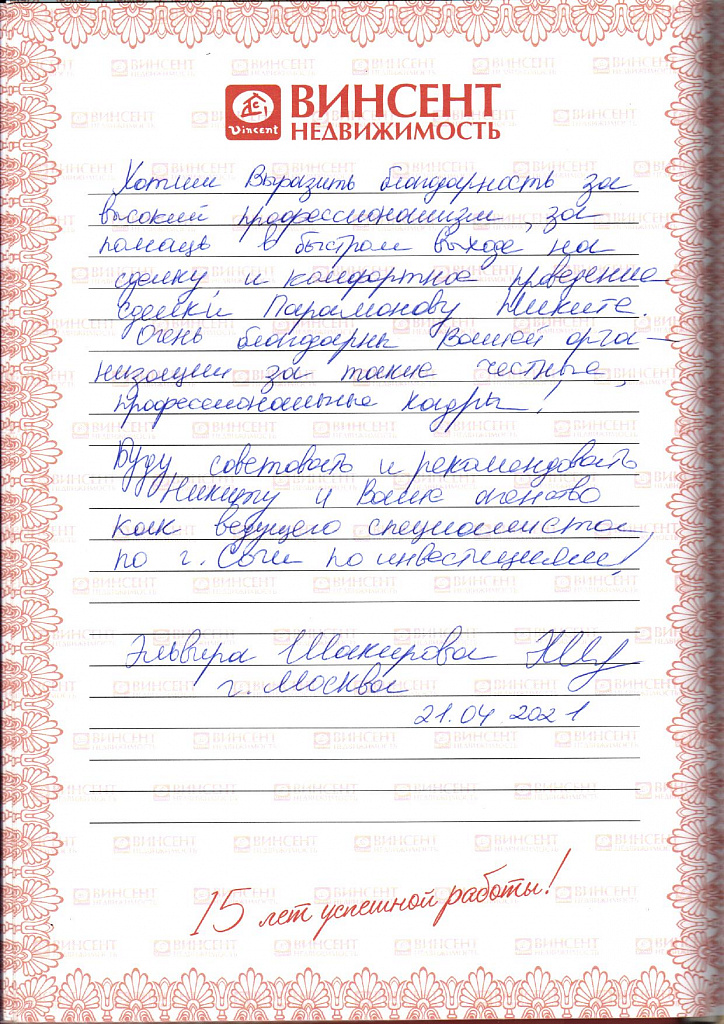 Vincent
ВИНСЕНТ
НЕДВИЖИМОСТЬ
Хотим Выразить благодарность за
высокий профессионализм, за
помощь в быстром выходе на
сделку и комфортное проведение
сделки Парамонову Никите.
Очень благодарны Вашей орга-
низации за такие честные,
профессиональные кадры!
Буду советовать и рекомендовать
Никиту и Ваше агенство
как ведущего специалиста
по г. Сочи по инвестициям!
Эльвира Шакирова
г. Москва
21.04.2021
15 лет успешной работы!